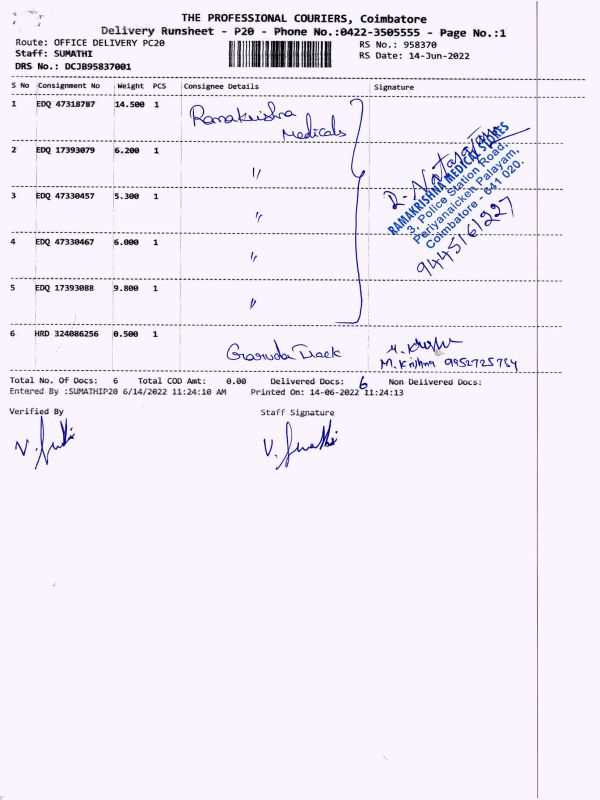 THE PROFESSIONAL COURIERS, Coimbatore
Delivery Runsheet - P20 - Phone No.:0422-3505555 - Page No.:1
Route: OFFICE DELIVERY PC20 RS No.: 958370
Staff: SUMATHI RS Date: 14-Jun-2022
DRS No.: DCJB95837001
S No Consignment No Weight PCS Consignee Details Signature
1 EDQ 47318787 14.500 1 Ramakrishna
Medicals
2 EDQ 17393079 6.200 1 〃
3 EDQ 47330457 5.300 1 〃
4 EDQ 47330467 6.000 1 〃
5 EDQ 17393088 9.800 1 〃
R. Natarajan
RAMAKRISHNA MEDICAL STORES
3, Police Station Road,
Periyanaicken Palayam,
Coimbatore - 641 020.
9445161227
6 HRD 324086256 0.500 1 Garuda Track
M. Krishna 9952725754
Total No. Of Docs: 6 Total COD Amt: 0.00 Delivered Docs: 6 Non Delivered Docs:
Entered By :SUMATHIP20 6/14/2022 11:24:10 AM Printed On: 14-06-2022 11:24:13
Verified By Staff Signature